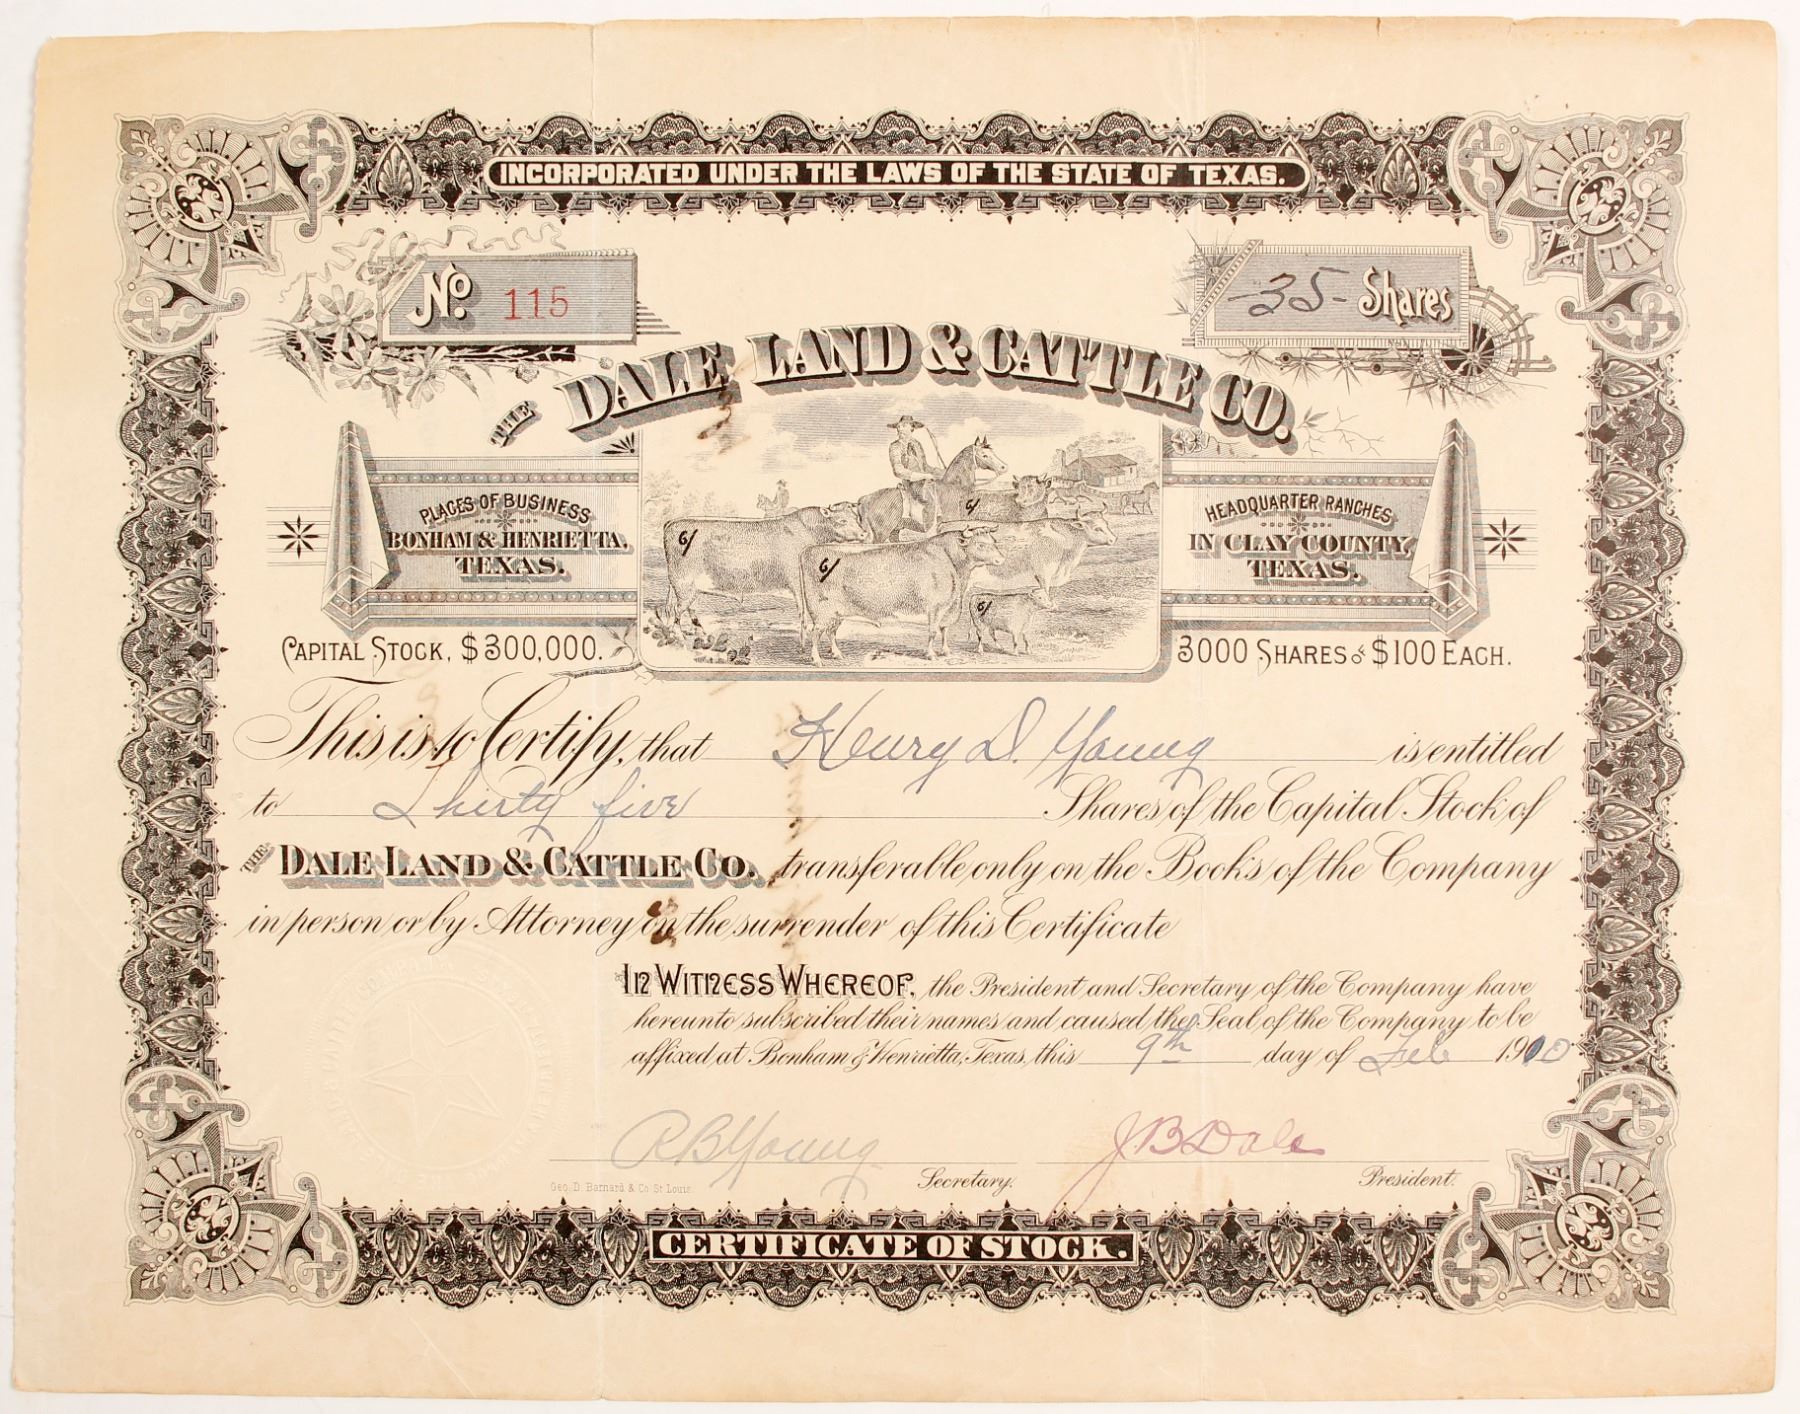 INCORPORATED UNDER THE LAWS OF THE STATE OF TEXAS.
No. 115
-35- Shares
THE DALE LAND & CATTLE CO.
PLACES OF BUSINESS
BONHAM & HENRIETTA,
TEXAS.
HEADQUARTER RANCHES
IN CLAY COUNTY,
TEXAS.
CAPITAL STOCK, $300,000.
3000 SHARES of $100 EACH.
This is to Certify, that Henry D. Young is entitled
to Thirty five Shares of the Capital Stock of
THE DALE LAND & CATTLE CO., transferable only on the Books of the Company
in person or by Attorney on the surrender of this Certificate
IN WITNESS WHEREOF, the President and Secretary of the Company have
hereunto subscribed their names and caused the Seal of the Company to be
affixed at Bonham & Henrietta, Texas, this 9th day of Feb 1910
RB Young
Secretary.
JB Dale
President.
Geo. D. Barnard & Co. St Louis
CERTIFICATE OF STOCK.